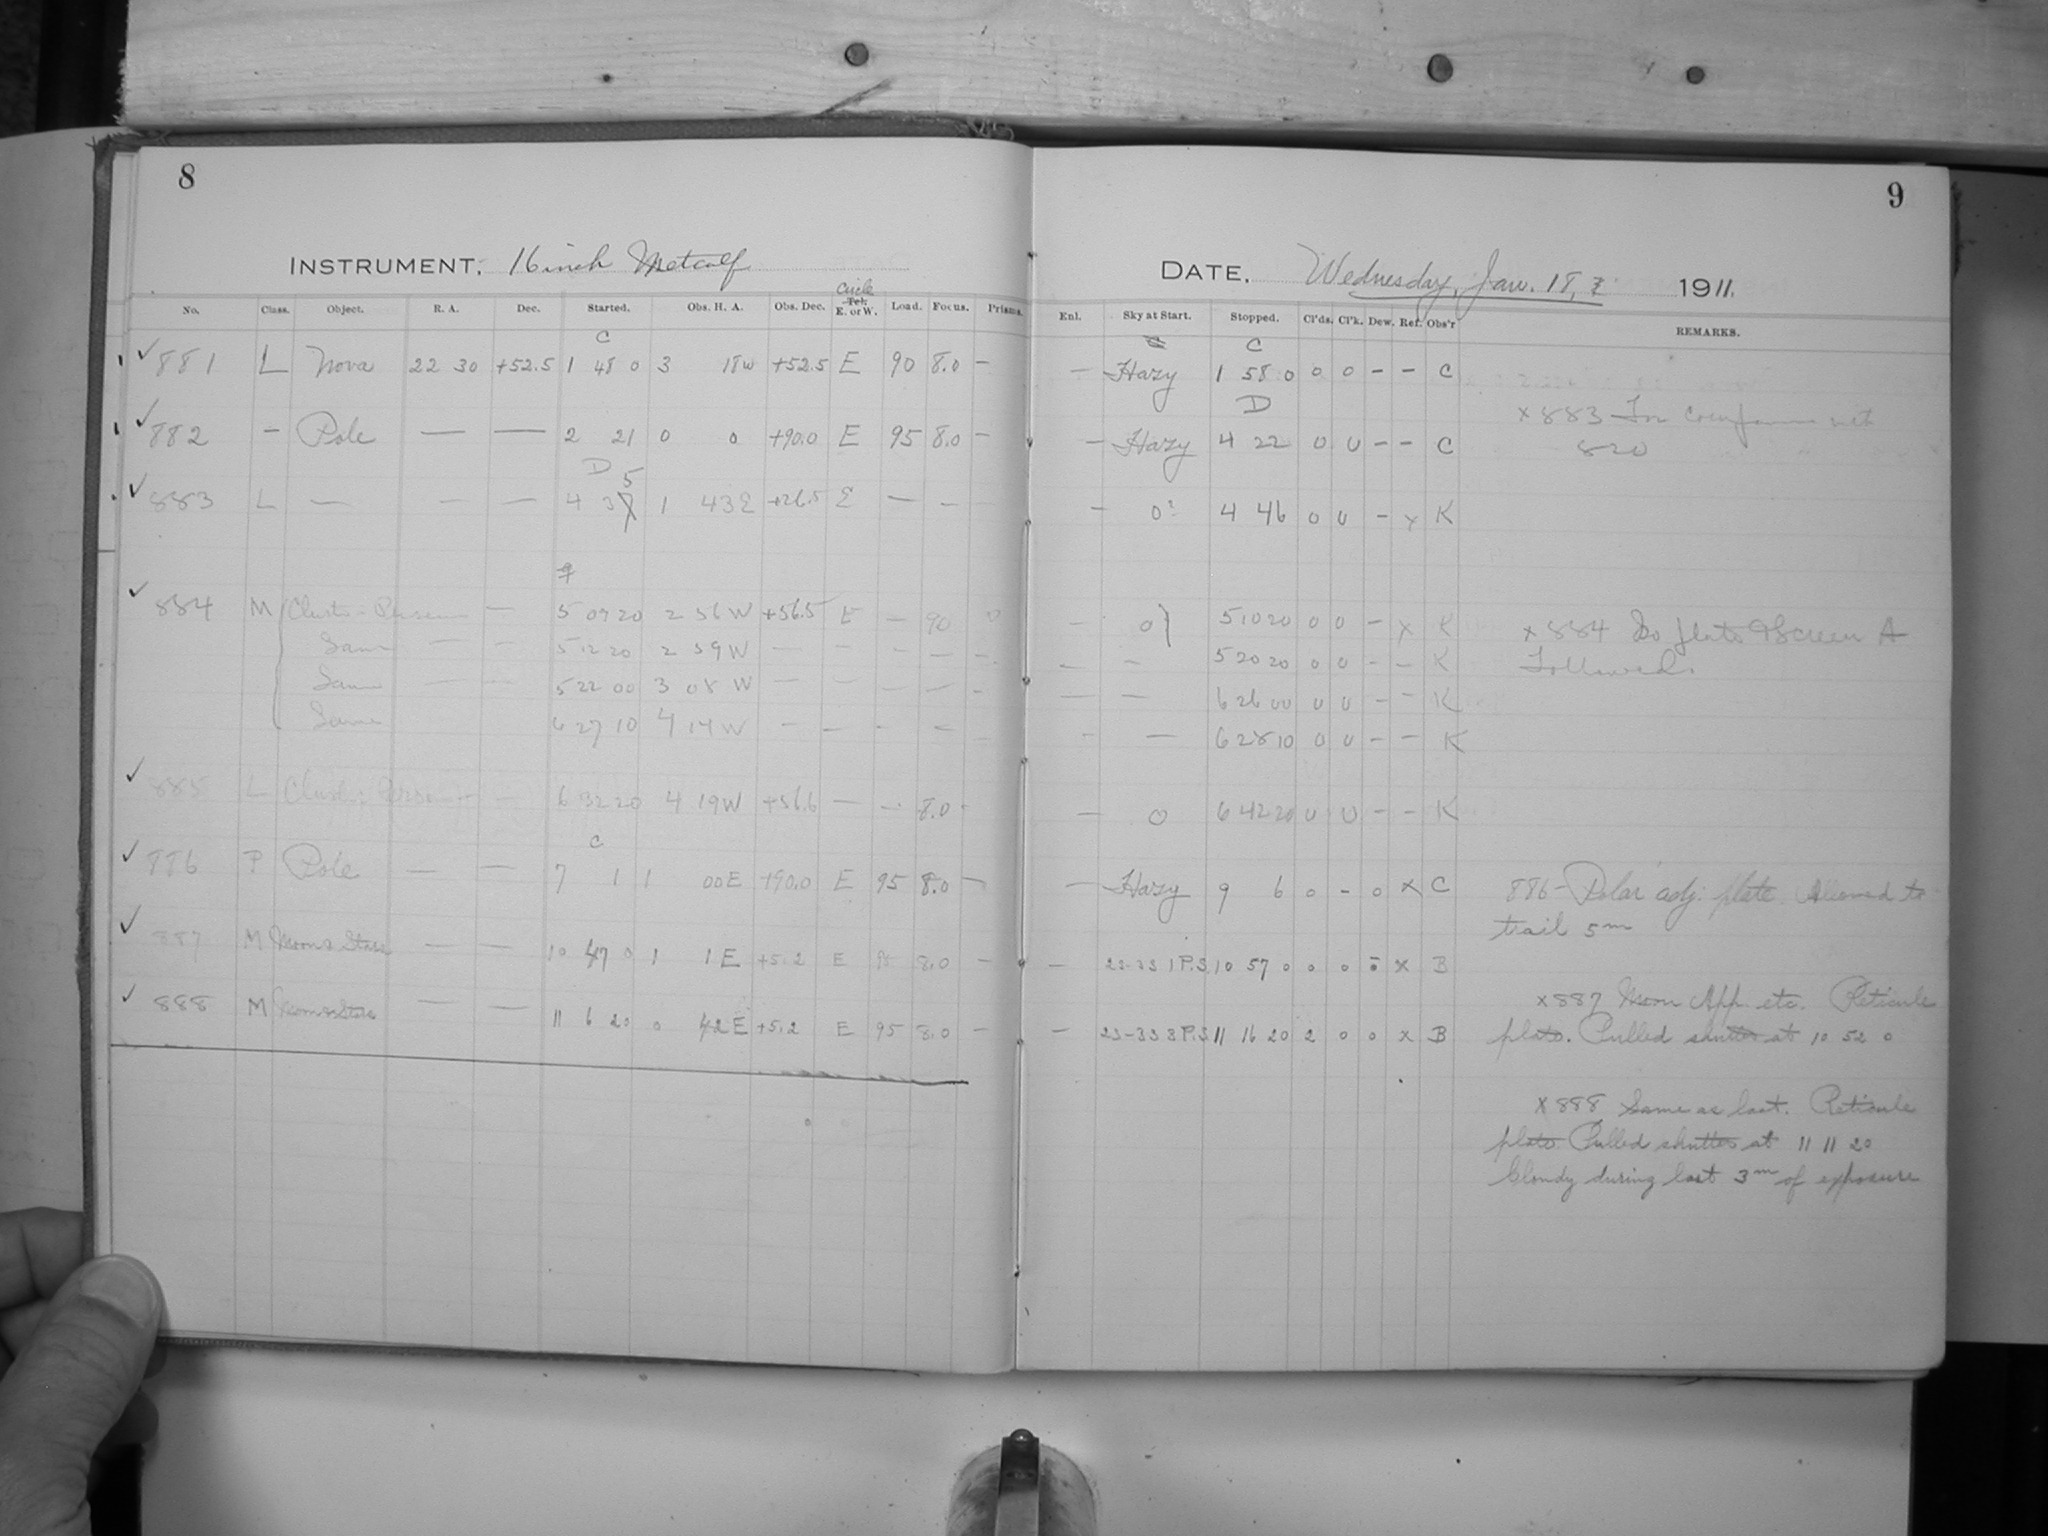 8
INSTRUMENT, 16 inch Metcalf
Circle
No. Class. Object. R. A. Dec. Started. Obs. H. A. Obs. Dec. Tel. E. or W. Load. Focus. Prisms.
C
881 L Nova 22 30 +52.5 1 48 0 3 18W +52.5 E 90 8.0 —
882 — Pole — — 2 21 0 0 +90.0 E 95 8.0 —
D 5
883 L — — — 4 37 1 43E +26.5 E — —
884 M — 5 09 20 2 56W +56.5 E — 90
Same — — 5 12 20 2 59W — — — — —
Same — — 5 22 00 3 08 W — — — — —
Same 6 27 10 4 14W — — — —
885 L 6 32 20 4 19W +56.6 — — 8.0 -
C
886 P Pole — — 7 1 1 00E +90.0 E 95 8.0 —
887 M Moon & Stars — — 10 47 0 1 1E +5.2 E 8.0 —
888 M Moon & Stars — — 11 6 20 0 42E +5.2 E 95 8.0 —
9
DATE, Wednesday, Jan. 18, 1911.
Enl. Sky at Start. Stopped. Cl'ds. Cl'k. Dew. Ref. Obs'r REMARKS.
C
— Hazy 1 58 0 0 0 — — C
D
— Hazy 4 22 0 0 — — C
x 883 For comparison with
820
— 0? 4 46 0 0 — x K
— 0 5 10 20 0 0 — x K
x 884 No plate & Screen A
Followed.
— — 5 20 20 0 0 — — K
— — 6 26 00 0 0 — — K
- — 6 28 10 0 0 — — K
— 0 6 42 20 0 0 — — K
— Hazy 9 6 0 - 0 x C
886 - Polar adj. plate. Allowed to
trail 5m
— 23-33 1 P.S. 10 57 0 0 0 0 x B
x 887 Moon App. etc. Reticule
plate. Pulled shutter at 10 52 0
— 23-33 3 P.S. 11 16 20 2 0 0 x B
x 888 Same as last. Reticule
plate. Pulled shutter at 11 11 20
Cloudy during last 3m of exposure